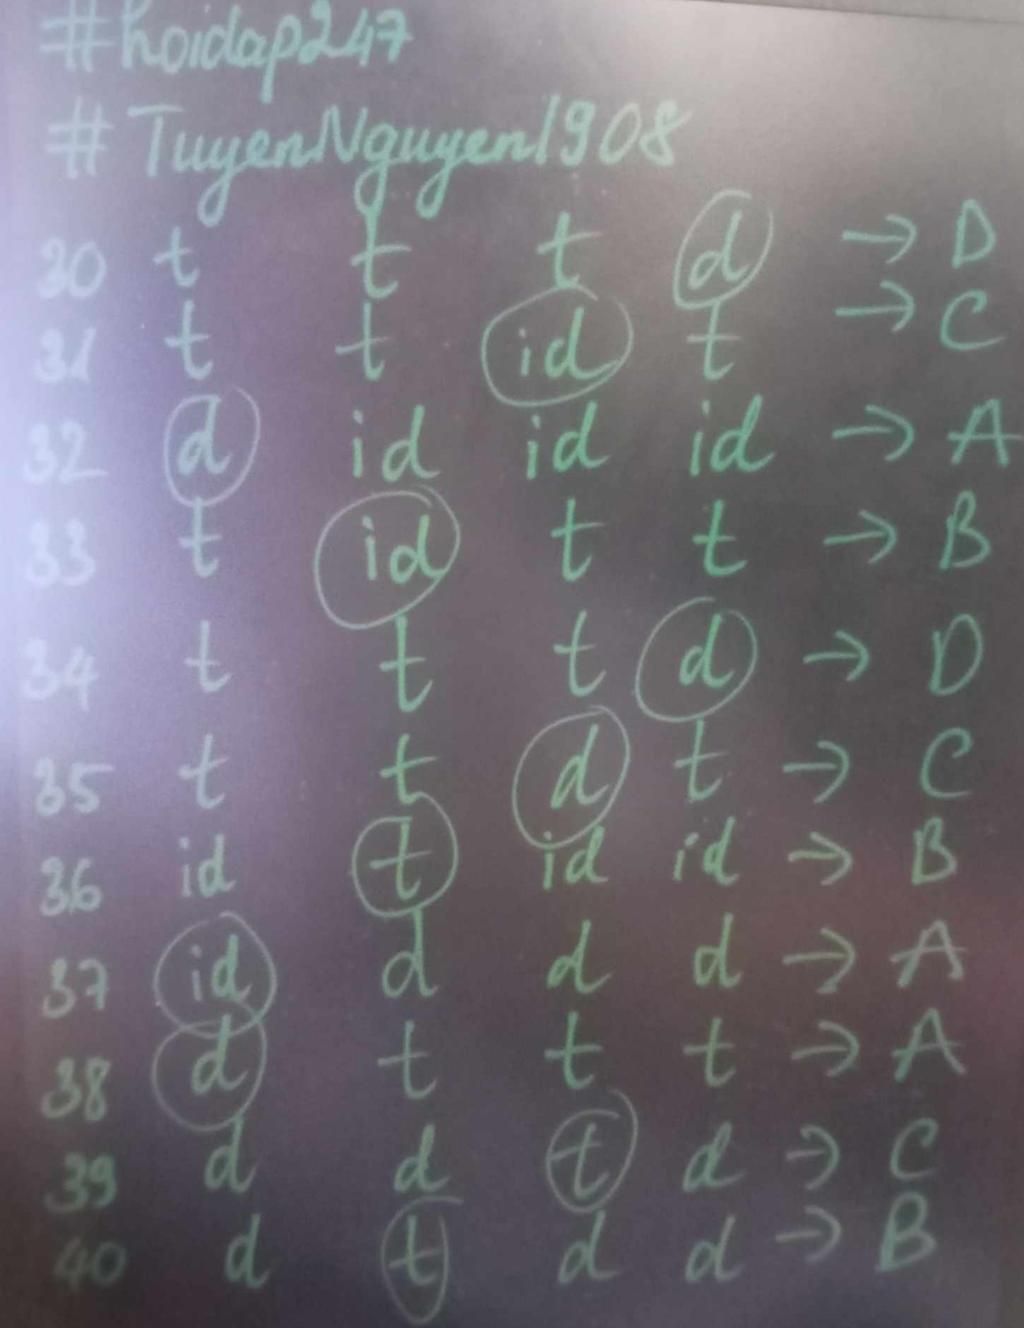 #hoidap247
#TuyenNguyen1908
30 t t t d → D
31 t t id t → C
32 d id id id → A
33 t id t t → B
34 t t t d → D
35 t t d t → C
36 id t id id → B
37 id d d d → A
38 d t t t → A
39 d d t d → C
40 d t d d → B